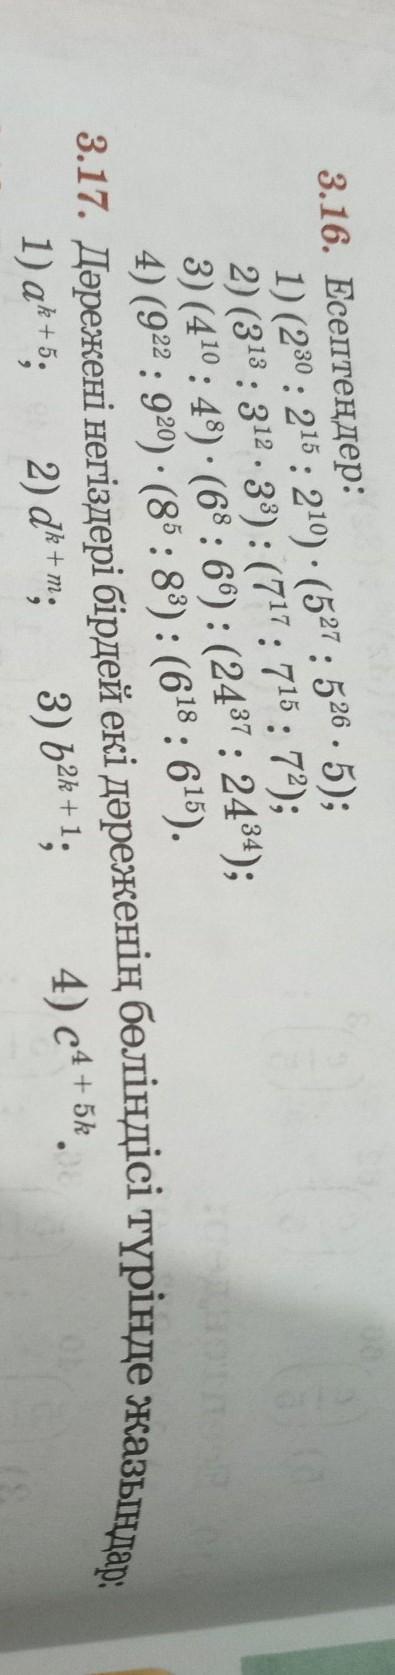 3.16. Есептеңдер:
1) (2³⁰ : 2¹⁵ : 2¹⁰) · (5²⁷ : 5²⁶ · 5);
2) (3¹³ : 3¹² · 3³) : (7¹⁷ : 7¹⁵ : 7²);
3) (4¹⁰ : 4⁸) · (6⁸ : 6⁶) : (24³⁷ : 24³⁴);
4) (9²² : 9²⁰) · (8⁵ : 8³) : (6¹⁸ : 6¹⁵).
3.17. Дәрежені негіздері бірдей екі дәреженің бөліндісі түрінде жазыңдар:
1) aᵏ ⁺ ⁵; 2) dᵏ ⁺ ᵐ; 3) b²ᵏ ⁺ ¹; 4) c⁴ ⁺ ⁵ᵏ.